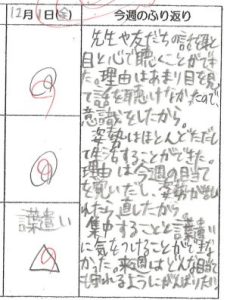 12月1日(金)
今週のふり返り
先生や友だちの話を耳と
目と心で聴くことができ
た。理由はあまり目を見
て話を聴けなかったので、
意識をしたから。
姿勢はほとんどただし
て生活することができた。
理由は今週の目当て
を書いだして、姿勢が悪
れたら直したから
集中することと言葉遣い
に気をつけることができな
かった。来週はどんな目当て
も守れるようにがんばりたい
言葉遣い